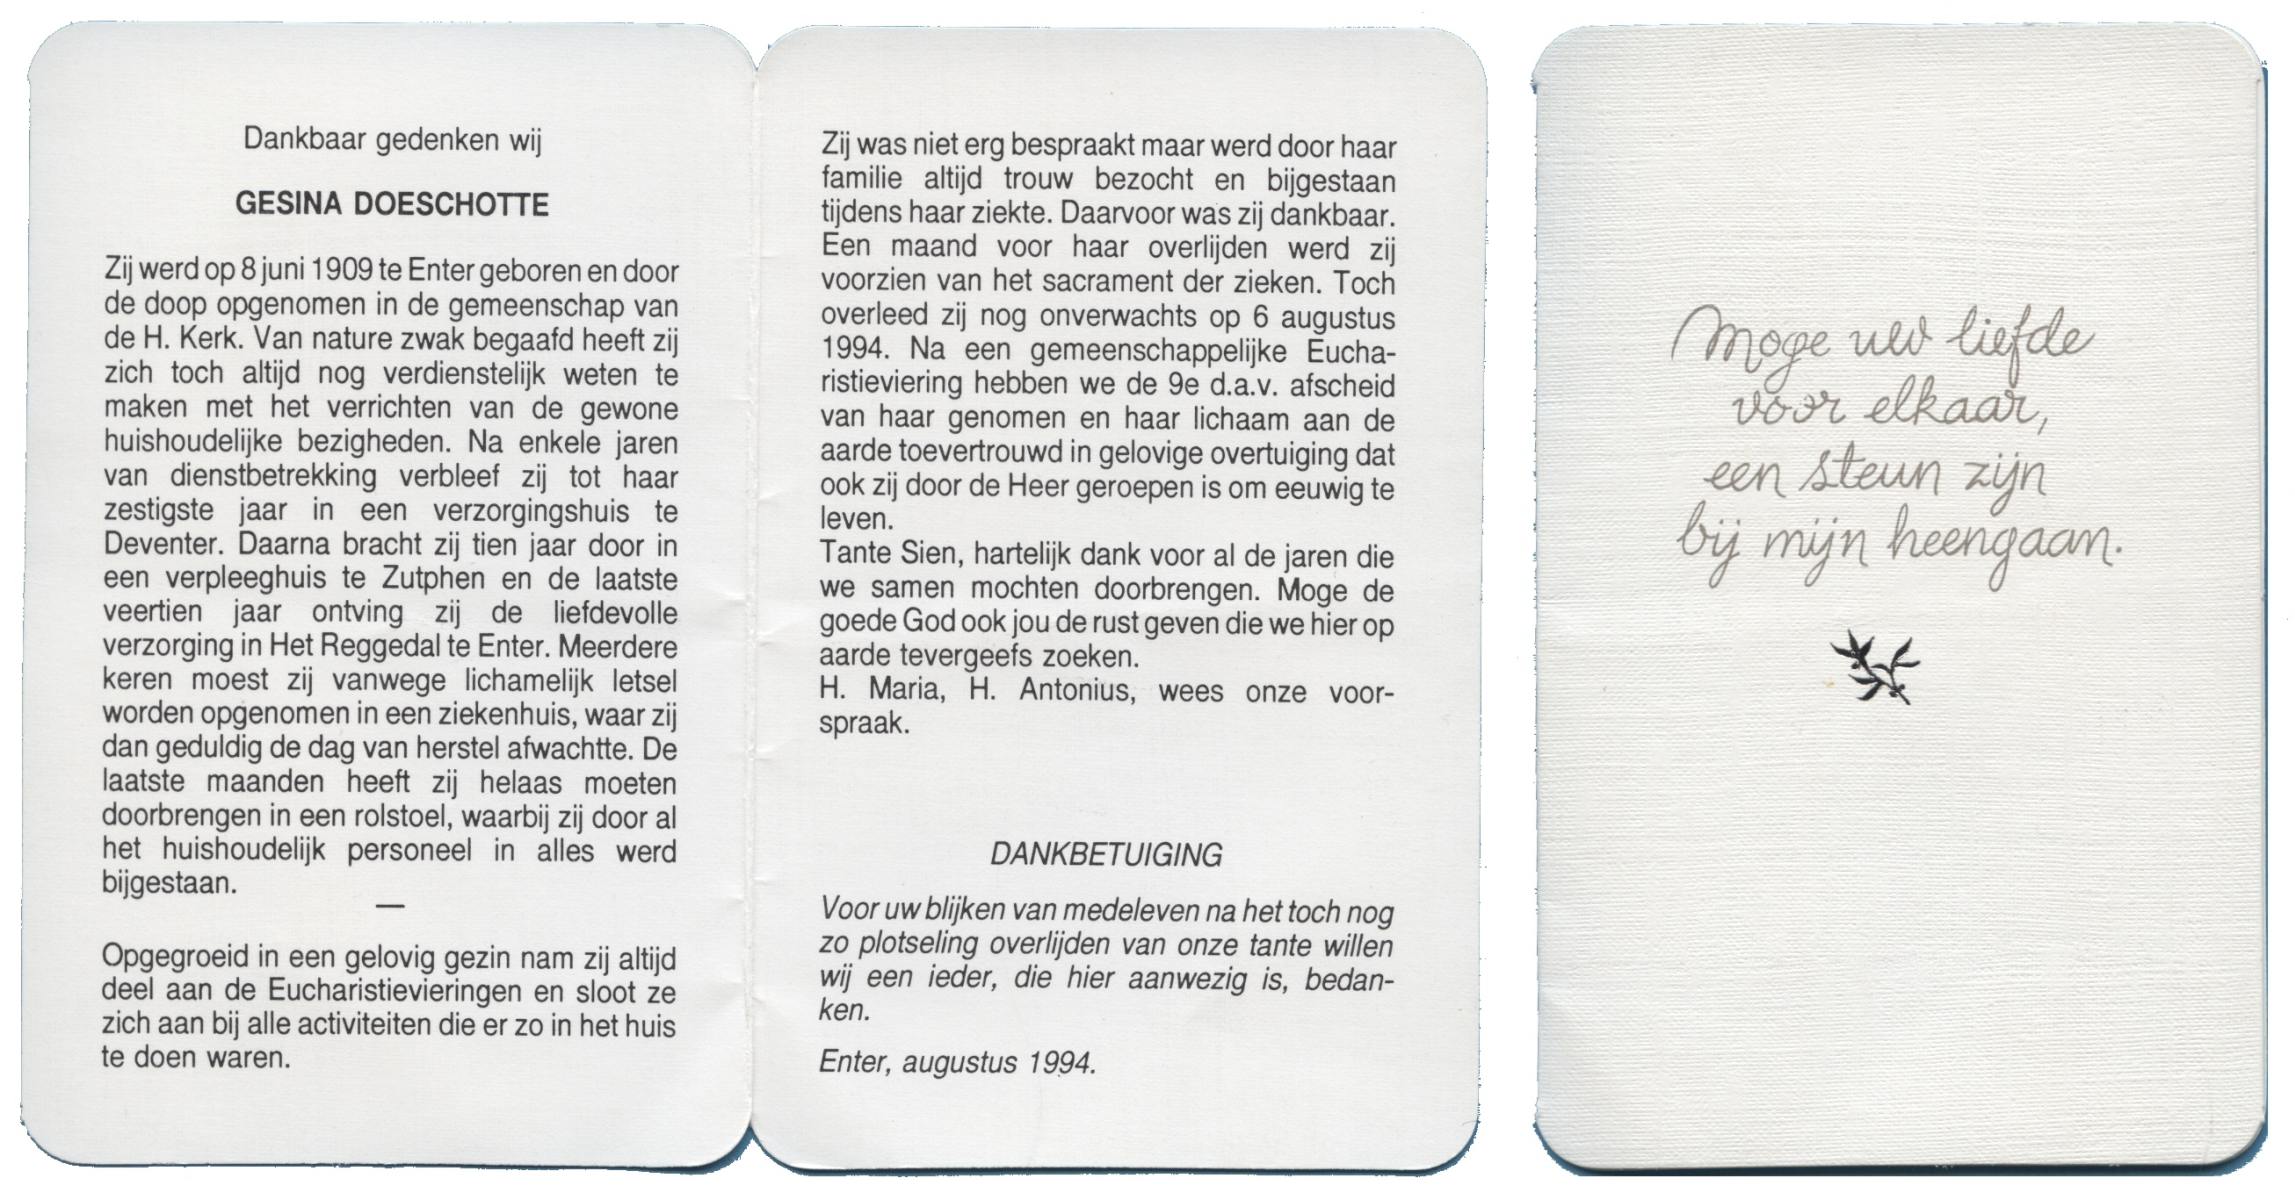 Dankbaar gedenken wij
GESINA DOESCHOTTE
Zij werd op 8 juni 1909 te Enter geboren en door
de doop opgenomen in de gemeenschap van
de H. Kerk. Van nature zwak begaafd heeft zij
zich toch altijd nog verdienstelijk weten te
maken met het verrichten van de gewone
huishoudelijke bezigheden. Na enkele jaren
van dienstbetrekking verbleef zij tot haar
zestigste jaar in een verzorgingshuis te
Deventer. Daarna bracht zij tien jaar door in
een verpleeghuis te Zutphen en de laatste
veertien jaar ontving zij de liefdevolle
verzorging in Het Reggedal te Enter. Meerdere
keren moest zij vanwege lichamelijk letsel
worden opgenomen in een ziekenhuis, waar zij
dan geduldig de dag van herstel afwachtte. De
laatste maanden heeft zij helaas moeten
doorbrengen in een rolstoel, waarbij zij door al
het huishoudelijk personeel in alles werd
bijgestaan.
—
Opgegroeid in een gelovig gezin nam zij altijd
deel aan de Eucharistievieringen en sloot ze
zich aan bij alle activiteiten die er zo in het huis
te doen waren.
Zij was niet erg bespraakt maar werd door haar
familie altijd trouw bezocht en bijgestaan
tijdens haar ziekte. Daarvoor was zij dankbaar.
Een maand voor haar overlijden werd zij
voorzien van het sacrament der zieken. Toch
overleed zij nog onverwachts op 6 augustus
1994. Na een gemeenschappelijke Eucha-
ristieviering hebben we de 9e d.a.v. afscheid
van haar genomen en haar lichaam aan de
aarde toevertrouwd in gelovige overtuiging dat
ook zij door de Heer geroepen is om eeuwig te
leven.
Tante Sien, hartelijk dank voor al de jaren die
we samen mochten doorbrengen. Moge de
goede God ook jou de rust geven die we hier op
aarde tevergeefs zoeken.
H. Maria, H. Antonius, wees onze voor-
spraak.
DANKBETUIGING
Voor uw blijken van medeleven na het toch nog
zo plotseling overlijden van onze tante willen
wij een ieder, die hier aanwezig is, bedan-
ken.
Enter, augustus 1994.
Moge uw liefde
voor elkaar,
een steun zijn
bij mijn heengaan.